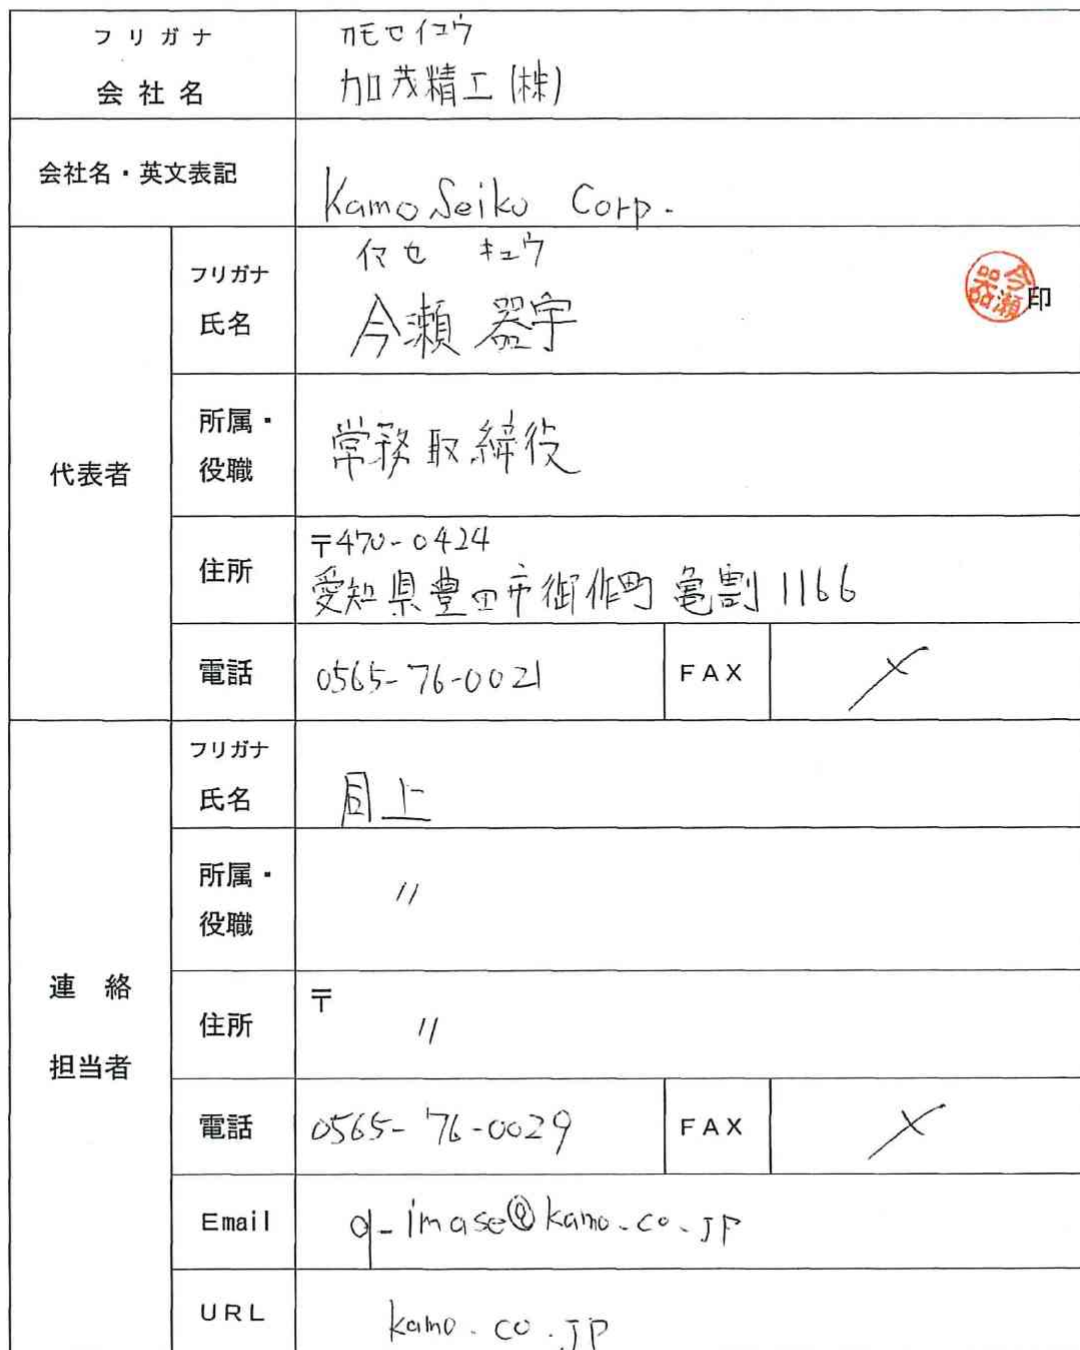 フリガナ
カモセイコウ
会社名
加茂精工(株)
会社名・英文表記
Kamo Seiko Corp.
代表者
フリガナ
イマセ キュウ
氏名
今瀬 器宇
今瀬器
印
所属・役職
常務取締役
住所
〒470-0424
愛知県豊田市御作町亀割1166
電話
0565-76-0021
FAX
連絡担当者
フリガナ
氏名
同上
所属・役職
〃
住所
〒
〃
電話
0565-76-0029
FAX
Email
q-imase@kamo.co.jp
URL
kamo.co.jp